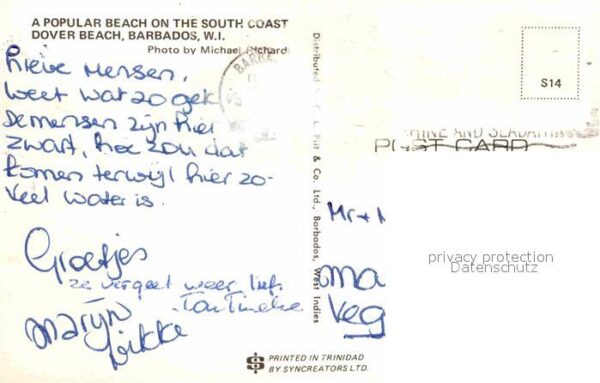 A POPULAR BEACH ON THE SOUTH COAST
DOVER BEACH, BARBADOS, W.I.
Photo by Michael
Lieve mensen,
weet wat zo gek
de mensen zijn hier
zwart, hoe zou dat
komen terwijl hier zo-
veel water is.
Groetjes
ze vergeet weer
Tan Tineke
Marijn
Distributed
Pitt & Co. Ltd., Barbados, West Indies
BARBA
S14
SHINE AND
POST CARD
Mr +
oma
Veg
privacy protection
Datenschutz
PRINTED IN TRINIDAD
BY SYNCREATORS LTD.